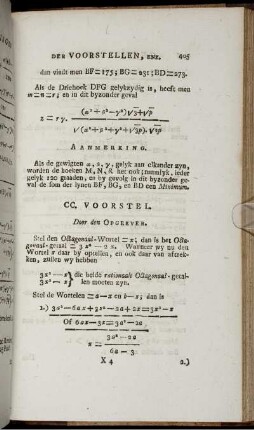 DER VOORSTELLEN, ENZ. 405
dan vindt men BF=175; BG=231; BD=273.
Als de Driehoek DFG gelykzydig is, heeft men
m=n=r; en in dit byzonder geval
AANMERKING.
Als de gewigten α, 2, y, gelyk aan elkander zyn,
worden de hoeken M, N, R het ook; namelyk, ieder
gelyk 120 graaden, en by gevolg in dit byzonder ge-
val de som der lynen BF, BG, en BD een Minimum.
CC. VOORSTEL.
Door den OPGEEVER.
Stel den Octagonaal-Wortel = x; dan is het Octa-
gonaal-getal = 3x² — 2x. Waartoe wy nu den
Wortel x daar by optellen, en ook daar van aftrek-
ken, zullen wy hebben
3x² — x } die beide rationaale Octagonaal-getal-
3x² — x } len moeten zyn.
Stel de Wortelen = a—x en b—x; dan is
1.) 3a² — 6ax + 3x² — 2a + 2x = 3x² — x
Of 6ax — 3x = 3a² — 2a
3a² — 2a
x =
6a — 3
X 4 2.)